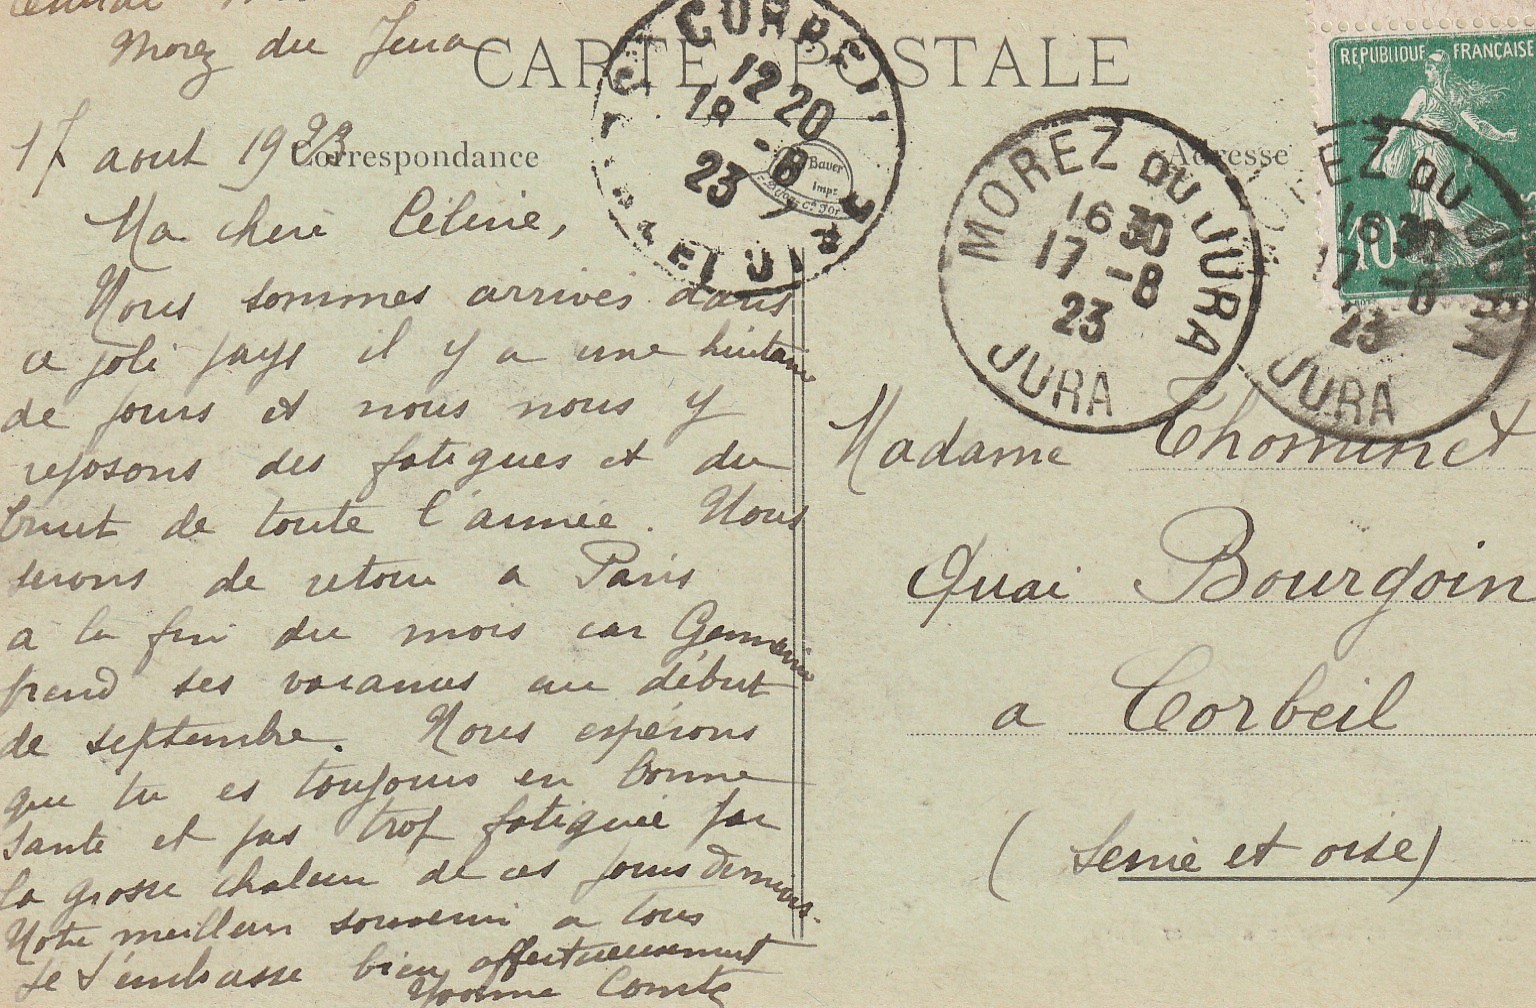 Morez du Jura
CARTE POSTALE
17 aout 1923
Correspondance
Ma chere Céline,
Nous sommes arrivés dans
ce joli pays il y a une huitaine
de jours et nous nous y
reposons des fatigues et du
bruit de toute l'année. Nous
serons de retour a Paris
a la fin du mois car Germaine
prend ses vacances au début
de septembre. Nous espérons
que tu es toujours en bonne
santé et pas trop fatiguée par
la grosse chaleur de ces jours derniers.
Notre meilleur souvenir a tous
Je t'embrasse bien affectueusement
Yvonne Comte
CORBEIL
12 20
18 -8
23
Bauer
Imps
MOREZ DU JURA
16 30
17 -8
23
JURA
Adresse
REPUBLIQUE FRANÇAISE
10
EZ DU JURA
16 30
17 -8
23
JURA
Madame Thominet
Quai Bourgoin
a Corbeil
(Seine et oise)